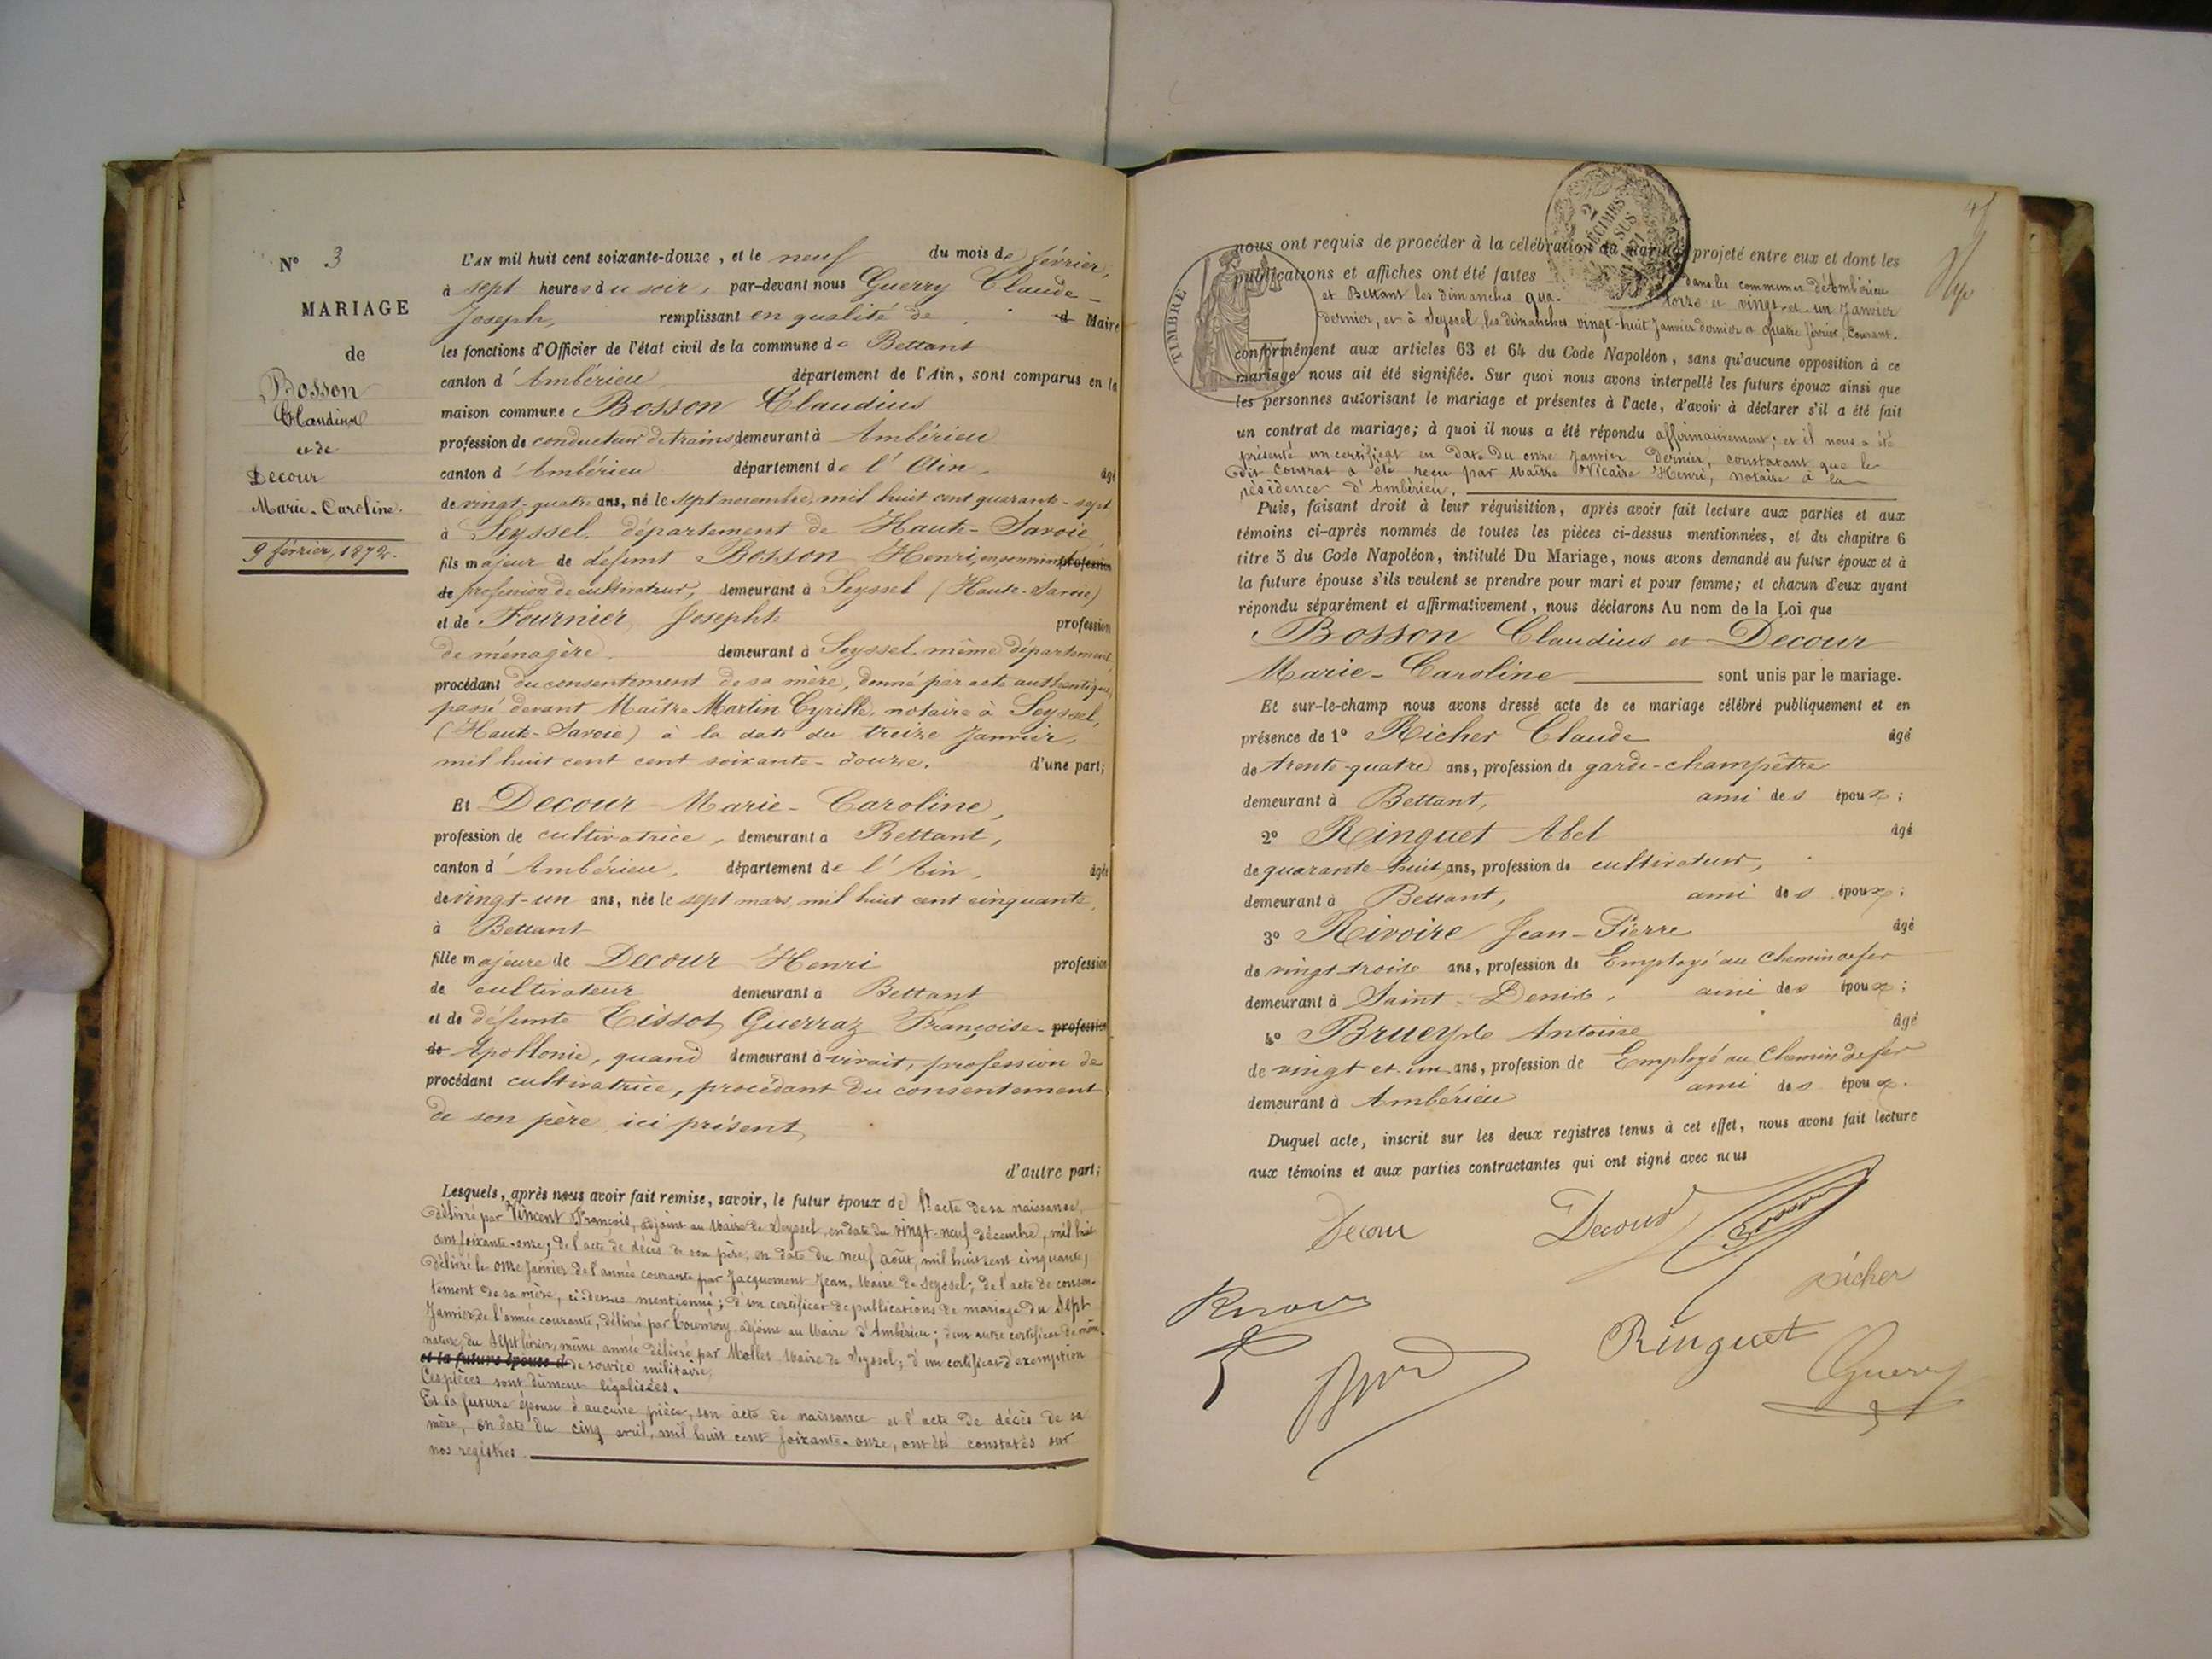 N° 3
MARIAGE
de
Bosson
Claudius
et de
Decour
Marie-Caroline.
9 février, 1872.
L'AN mil huit cent soixante-douze, et le neuf du mois de février,
à sept heures du soir, par-devant nous Guerry Claude-
Joseph, remplissant en qualité de Maire
les fonctions d'Officier de l'état civil de la commune de Bettant
canton d'Ambérieu département de l'Ain, sont comparus en la
maison commune Bosson Claudius
profession de conducteur de trains demeurant à Ambérieu
canton d'Ambérieu département de l'Ain, âgé
de vingt-quatre ans, né le sept novembre, mil huit cent quarante-sept
à Seyssel, département de Haute-Savoie,
fils majeur de défunt Bosson Henri, en son vivant profession
de profession de cultivateur, demeurant à Seyssel (Haute-Savoie)
et de Fournier Josephte profession
de ménagère demeurant à Seyssel même département,
procédant du consentement de sa mère, donné par acte authentique,
passé devant Maître Martin Cyrille, notaire à Seyssel,
(Haute-Savoie) à la date du treize Janvier,
mil huit cent cent soixante-douze. d'une part;
Et Decour Marie-Caroline,
profession de cultivatrice, demeurant à Bettant,
canton d'Ambérieu, département de l'Ain, âgée
de vingt-un ans, née le sept mars, mil huit cent cinquante,
à Bettant
fille majeure de Decour Henri profession
de cultivateur demeurant à Bettant
et de défunte Tissot Guerraz Françoise- profession
de Apollonie, quand demeurant à vivait, profession de
procédant cultivatrice, procédant du consentement
de son père ici présent,
d'autre part;
Lesquels, après nous avoir fait remise, savoir, le futur époux de l'acte de sa naissance,
délivré par Vincent François, adjoint au Maire de Seyssel, en date du vingt-neuf décembre, mil huit
cent soixante-onze; de l'acte de décès de son père, en date du neuf août, mil huit cent cinquante,
délivré le onze Janvier de l'année courante par Jacquemont Jean, Maire de Seyssel; de l'acte de consen-
tement de sa mère, ci-dessus mentionné; d'un certificat de publications de mariage du Sept
Janvier de l'année courante, délivré par adjoint au Maire d'Ambérieu; d'un autre certificat de même
nature, du Sept février, même année délivré par Mollet Maire de Seyssel; d'un certificat d'exemption
et la future épouse d de service militaire,
Ces pièces sont dûment légalisées.
Et la future épouse d'aucune pièce, son acte de naissance et l'acte de décès de sa
mère, en date du cinq avril, mil huit cent soixante-onze, ont été constatés sur
nos registres.
2 DÉCIMES SUS
TIMBRE
nous ont requis de procéder à la célébration du mariage projeté entre eux et dont les
publications et affiches ont été faites dans les communes d'Ambérieu
et Bettant les dimanches qua- torze et vingt-et-un Janvier
dernier, et à Seyssel, les dimanches vingt-huit Janvier dernier et quatre février, Courant.
conformément aux articles 63 et 64 du Code Napoléon, sans qu'aucune opposition à ce
mariage nous ait été signifiée. Sur quoi nous avons interpellé les futurs époux ainsi que
les personnes autorisant le mariage et présentes à l'acte, d'avoir à déclarer s'il a été fait
un contrat de mariage; à quoi il nous a été répondu affirmativement; et il nous a été
présenté un certificat en date du onze Janvier dernier, constatant que le
dit Contrat a été reçu par Maître Vicaire Henri, notaire à la
résidence d'Ambérieu.
Puis, faisant droit à leur réquisition, après avoir fait lecture aux parties et aux
témoins ci-après nommés de toutes les pièces ci-dessus mentionnées, et du chapitre 6
titre 5 du Code Napoléon, intitulé Du Mariage, nous avons demandé au futur époux et à
la future épouse s'ils veulent se prendre pour mari et pour femme; et chacun d'eux ayant
répondu séparément et affirmativement, nous déclarons Au nom de la Loi que
Bosson Claudius et Decour
Marie-Caroline sont unis par le mariage.
Et sur-le-champ nous avons dressé acte de ce mariage célébré publiquement et en
présence de 1° Richer Claude âgé
de trente-quatre ans, profession de garde-champêtre
demeurant à Bettant, ami des époux;
2° Ringuet Abel âgé
de quarante-huit ans, profession de cultivateur,
demeurant à Bettant, ami des époux;
3° Rivoire Jean-Pierre âgé
de vingt-trois ans, profession de Employé au Chemin de fer
demeurant à Saint-Denis, ami des époux;
4° Brueyre Antoine âgé
de vingt et un ans, profession de Employé au Chemin de fer
demeurant à Ambérieu ami des époux.
Duquel acte, inscrit sur les deux registres tenus à cet effet, nous avons fait lecture
aux témoins et aux parties contractantes qui ont signé avec nous
Decour Decour Bosson
Richer
Ringuet
Guerry